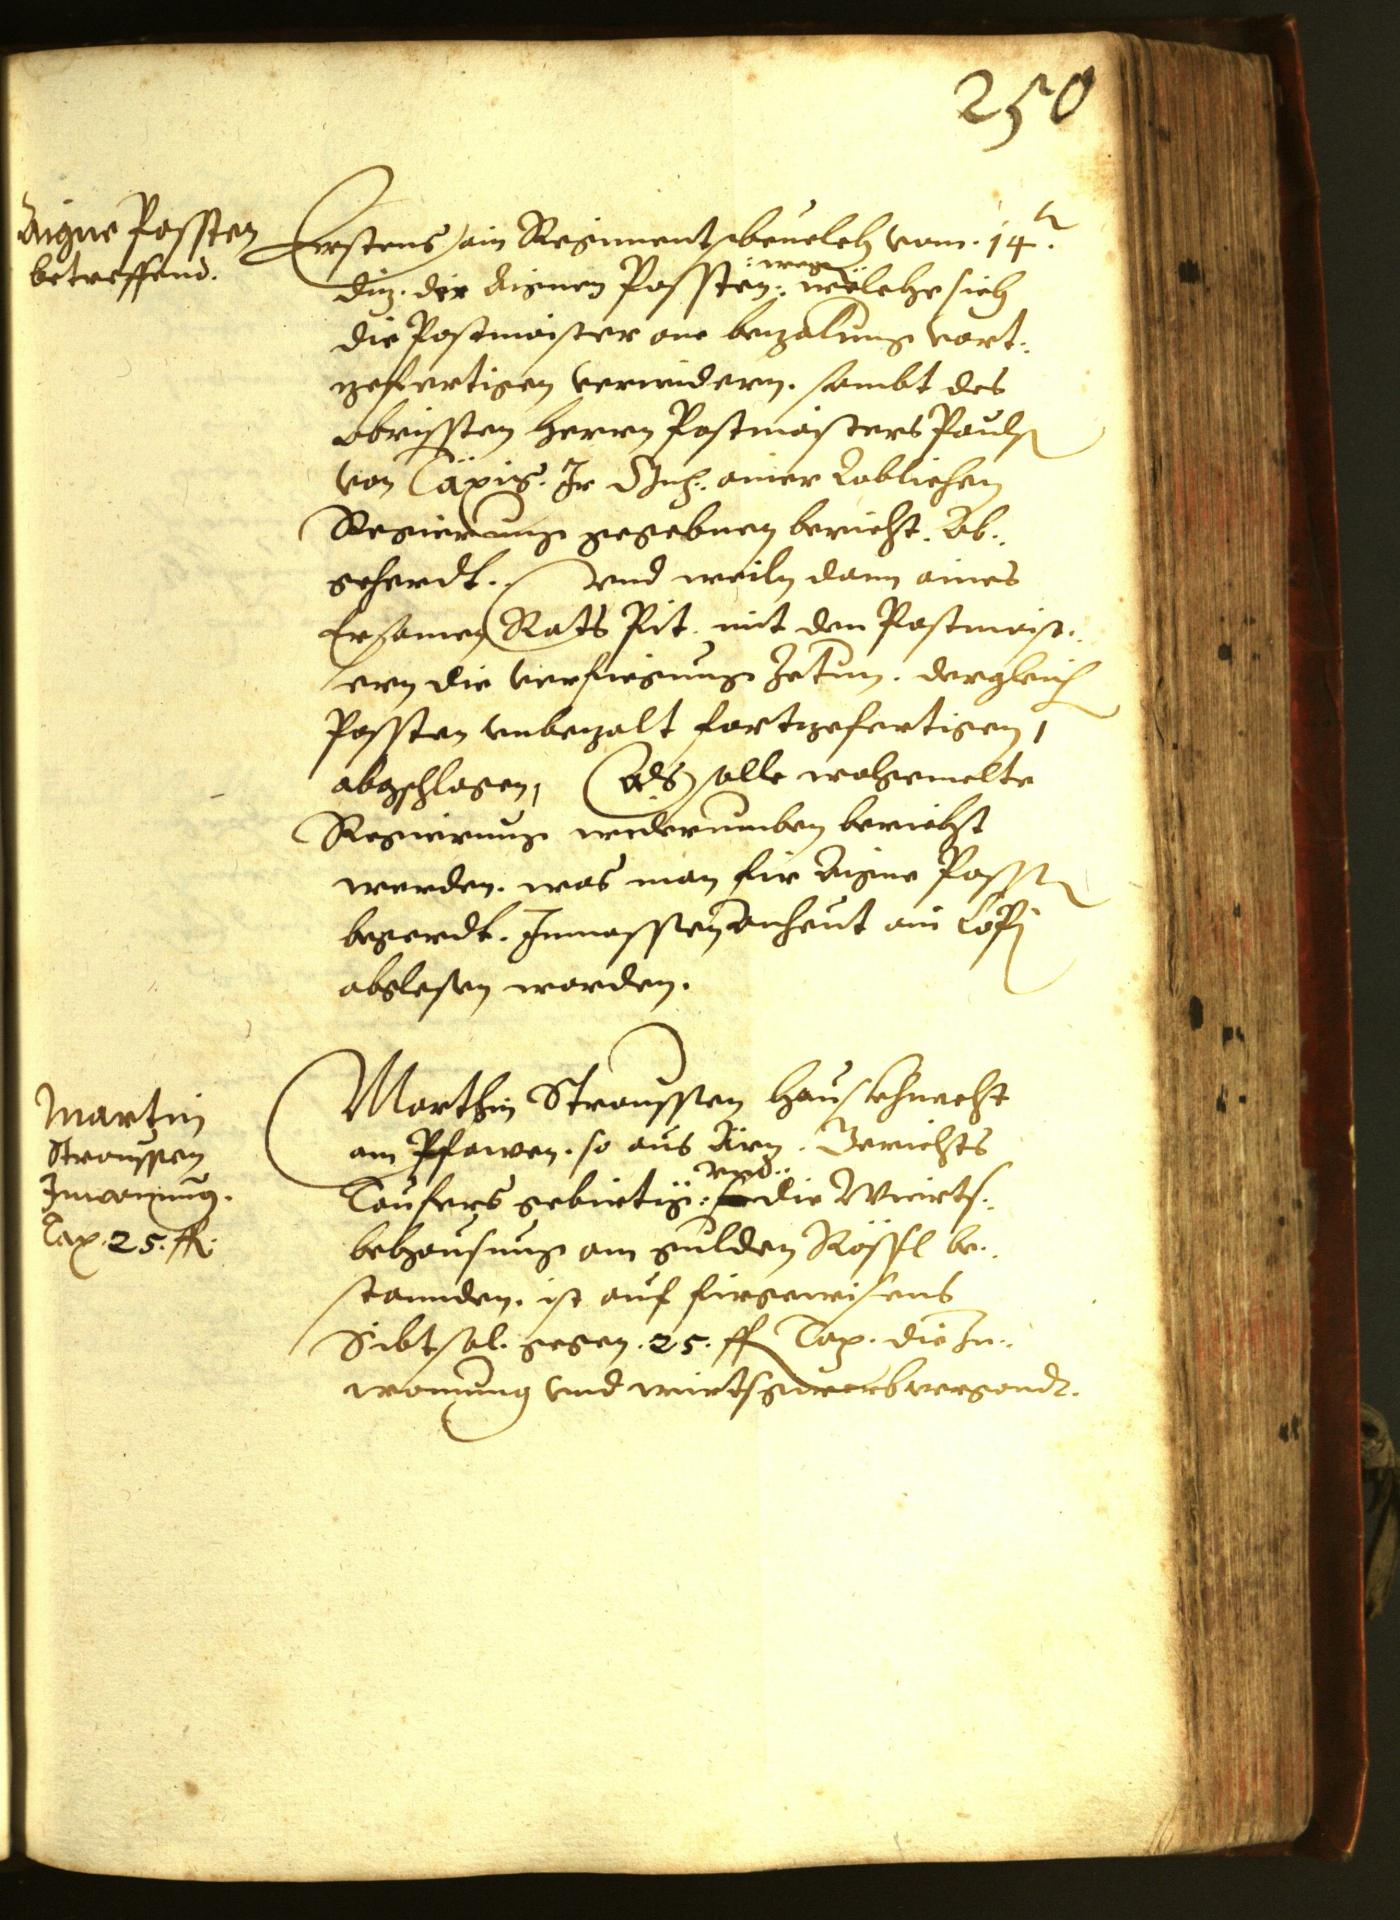 250
Aigne Possten
betreffend.
Erstens, ain Regiments beuelch vom. 14.
diz. der Aignen Possten: wegen: welche sich
die Postmaister one bezalung vort:
zefertigen verwidern. sambt des
obrissten Herrn Postmaisters Pauls
von Taxis. Jr Gnd. ainer Loblichen
Regierung gegebnen bericht. Ab:
gehördt. Vnd weiln dann aines
Ersamen Rats Pit. mit den Postmaist:
ern die verfiegung zetun. dergleich
Possten vnbezalt fortzefertigen,
abgschlagen, Als solle wolgemelte
Regierung widerumben bericht
werden. was man fir Aigne Posst
begerdt. Jnmassen anheut ain Copj
abglesen worden.
Martin
Straussen
Jnwonung.
Tax. 25. fl.
Marthin Straussen Hausknecht
am Pfawen. so aus Ärn. Gerichts
Taufers gebirtig: vnd: die Wierts:
behausung am gulden Rössl be:
stannden. ist auf firgewisens
gegen. 25. fl Tax. die Jn:
wonung vnd wirtsgwerb vergondt.